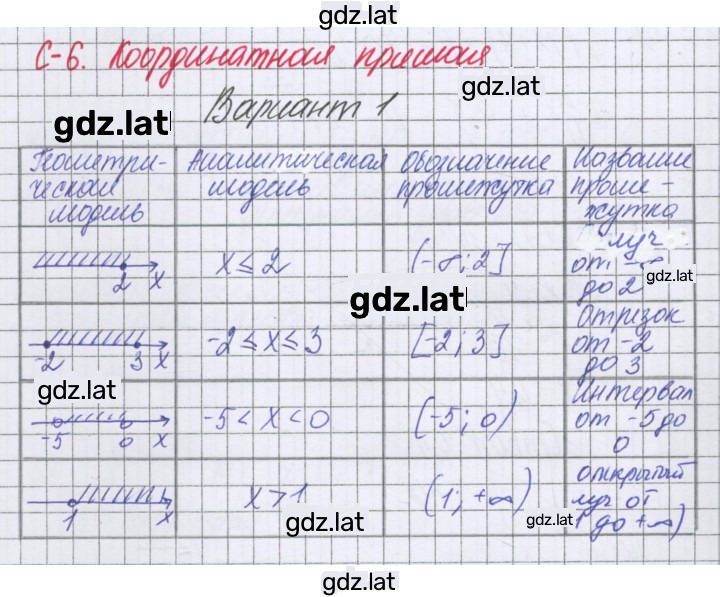 gdz.lat
С-6. Координатная прямая
gdz.lat
Вариант 1
gdz.lat
Геометри-
ческая
модель
Аналитическая
модель
Обозначение
промежутка
Название
проме-
жутка
2 x
x ≤ 2
(-∞; 2]
луч
от -∞
до 2
gdz.lat
gdz.lat
-2 3 x
-2 ≤ x ≤ 3
[-2; 3]
Отрезок
от -2
до 3
gdz.lat
-5 0 x
-5 < x < 0
(-5; 0)
Интервал
от -5 до
0
1 x
x > 1
(1; +∞)
открытый
луч от
1 до +∞)
gdz.lat
gdz.lat
gdz.lat